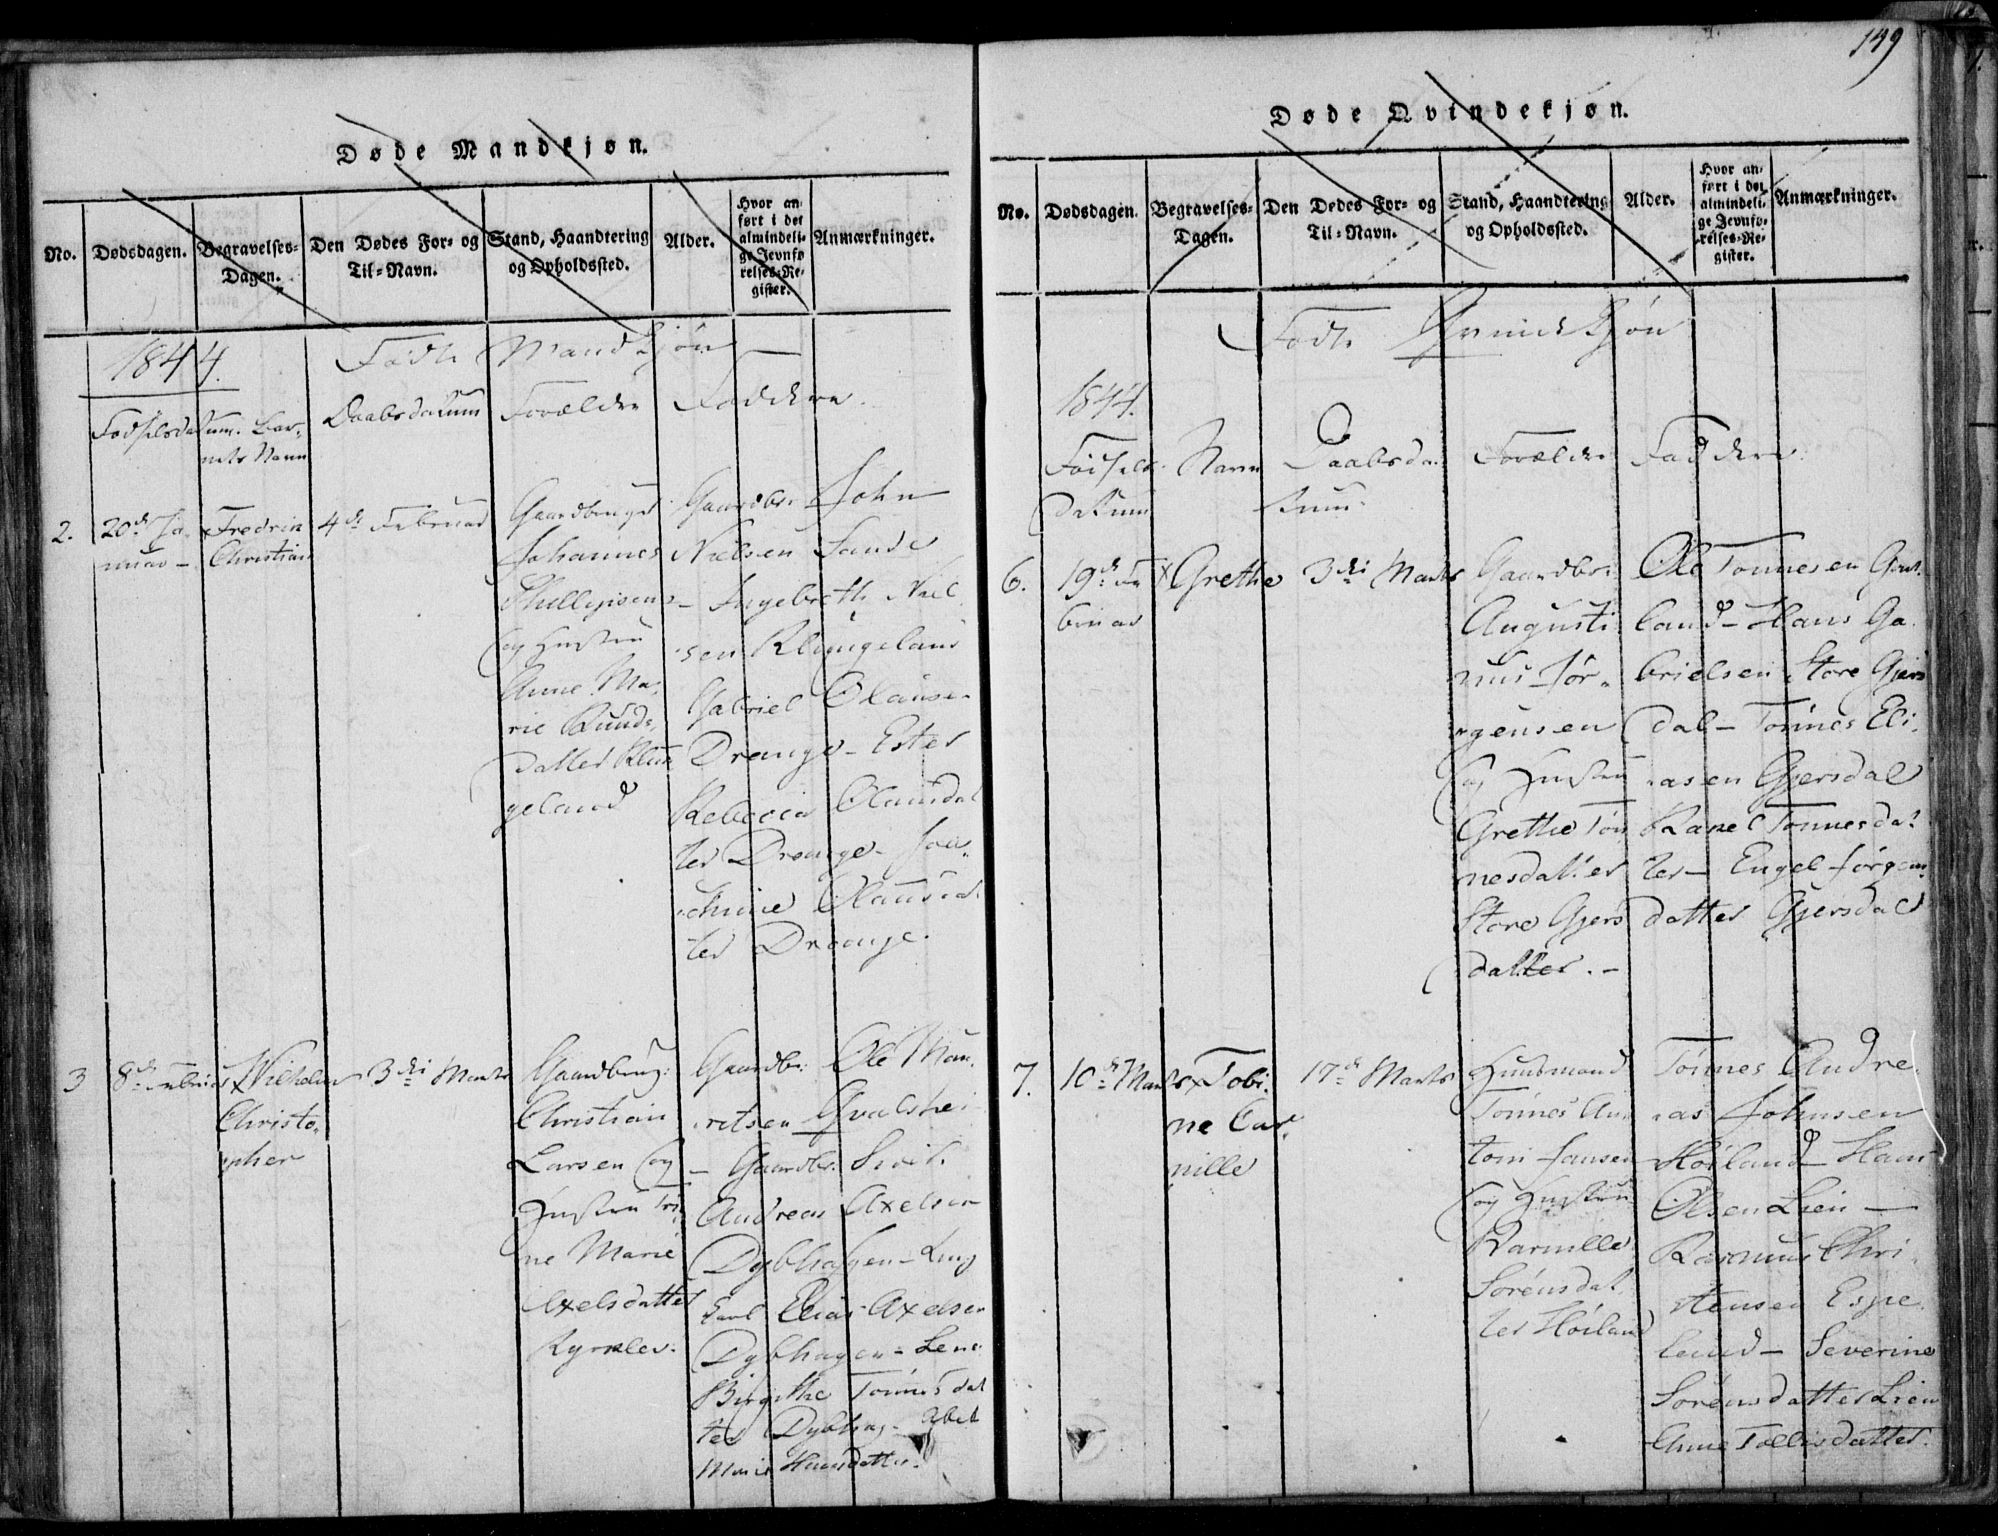 149
Døde Mandkjøn.
No.
Dødsdagen.
Begravelses-
Dagen.
Den Dødes For- og
Til-Navn.
Stand, Haandtering
og Opholdssted.
Alder.
Hvor an-
ført i det
almindeli-
ge Jevnfø-
relses-Re-
gister.
Anmærkninger.
1844.
Fødte Mandkjøn
Fødselsdatum.
Bar-
nets Navn
Daabsdatum
Forældre
Faddere.
2.
20de Ja-
nuar
Fredrik
Christian
4de Februar
Gaardbruger
Johannes
og Hustru
Anne Ma-
rie
datter Klun
geland
Gaardbr. John
Nielsen Sande
- Ingebreth Niel
sen Klungeland
Gabriel Olausen
Drange - Ester
Rebecca Olausdat
ter Drange - Joa-
chime Olausdat
ter Drange.
3
8de Februar
Wilhelm
Christo-
pher
3die Marts
Gaardbrug:
Christian
Larsen og
Hustru Tri-
ne Marie
Axelsdatter
Gaardbr. Ole Mau-
ritsen Qvalshei
- Gaardbr.
Andreas Axelsen
Dybhagen - Ung
karl Elias Axelsen
Dybhagen - Lene
Birgithe Tønnesdat
ter Dybhag -
Marie Hansdatter.
Døde Qvindekjøn.
No.
Dødsdagen.
Begravelses-
Dagen.
Den Dødes For- og
Til-Navn.
Stand, Haandtering
og Opholdssted.
Alder.
Hvor an-
ført i det
almindeli-
ge Jevnfø-
relses-Re-
gister.
Anmærkninger.
Fødte Qvindekjøn
1844.
Fødsels-
datum
Navn
Daabsda-
tum.
Forældre
Faddere.
6.
19de Fe
bruar
Grethe
3die Marts
Gaardbr:
Augusti
nus Jør-
gensen
og Hustru
Grethe Tøn
nesdatter
Store Gjers
dal
Ole Tønnesen
land - Hans Ga-
brielsen Store Gjers
dal - Tønnes Eli-
asen Gjersdal
Karel Tønnesdat
ter - Engel Jørgens
datter Gjersdal
7.
10de Marts
Tobi-
ne Car-
nille
17de Marts
Huusmand
Tønnes An-
toni Jansen
og Hustru
Sørensdat
ter Høiland
Tønnes Andre-
as Johnsen
Høiland - Hans
Olsen Lien -
Rasmus Chri-
stensen Espe-
land - Severine
Sørensdatter Lien
Anne Tollisdatter.